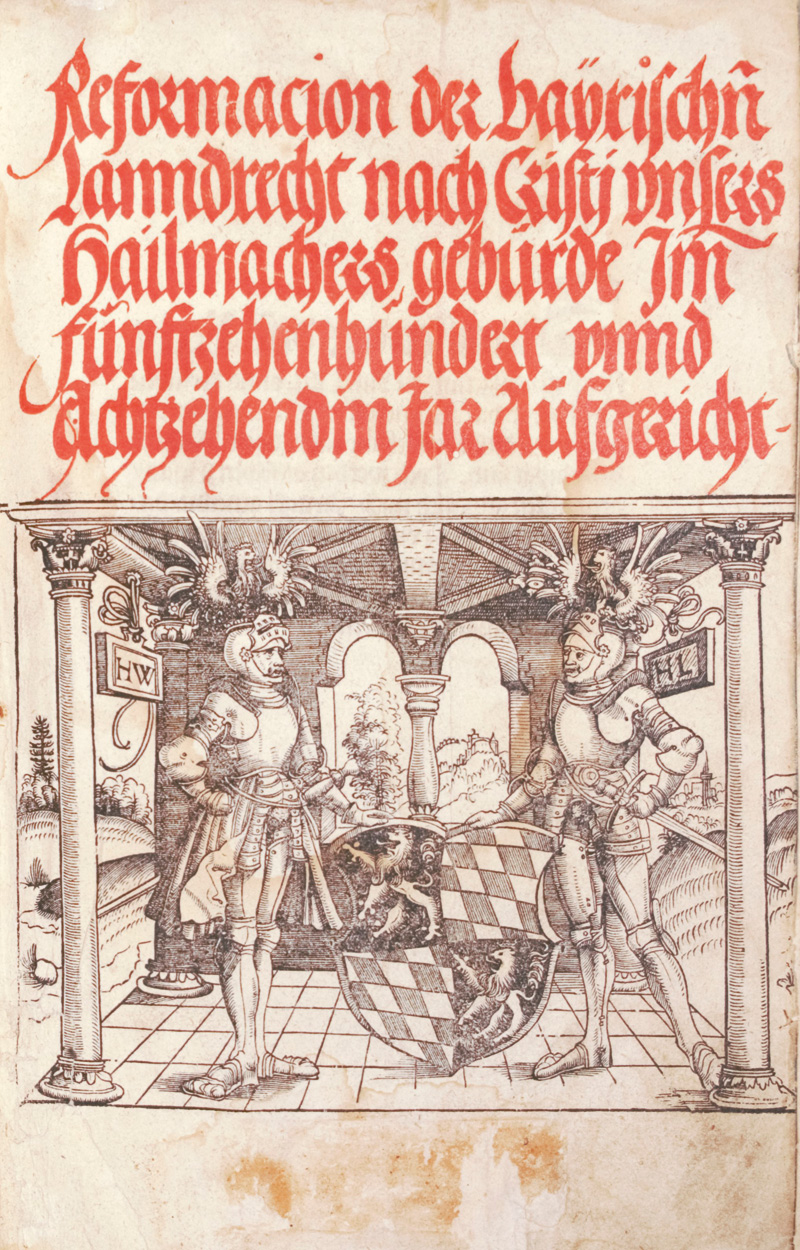 Reformacion der bayrischñ
Lanndrecht nach Cristi vnsers
Hailmachers gebürde Im
fünftzehenhündert vnnd
Achtzehendm Jar Aüfgericht-
HW
HL